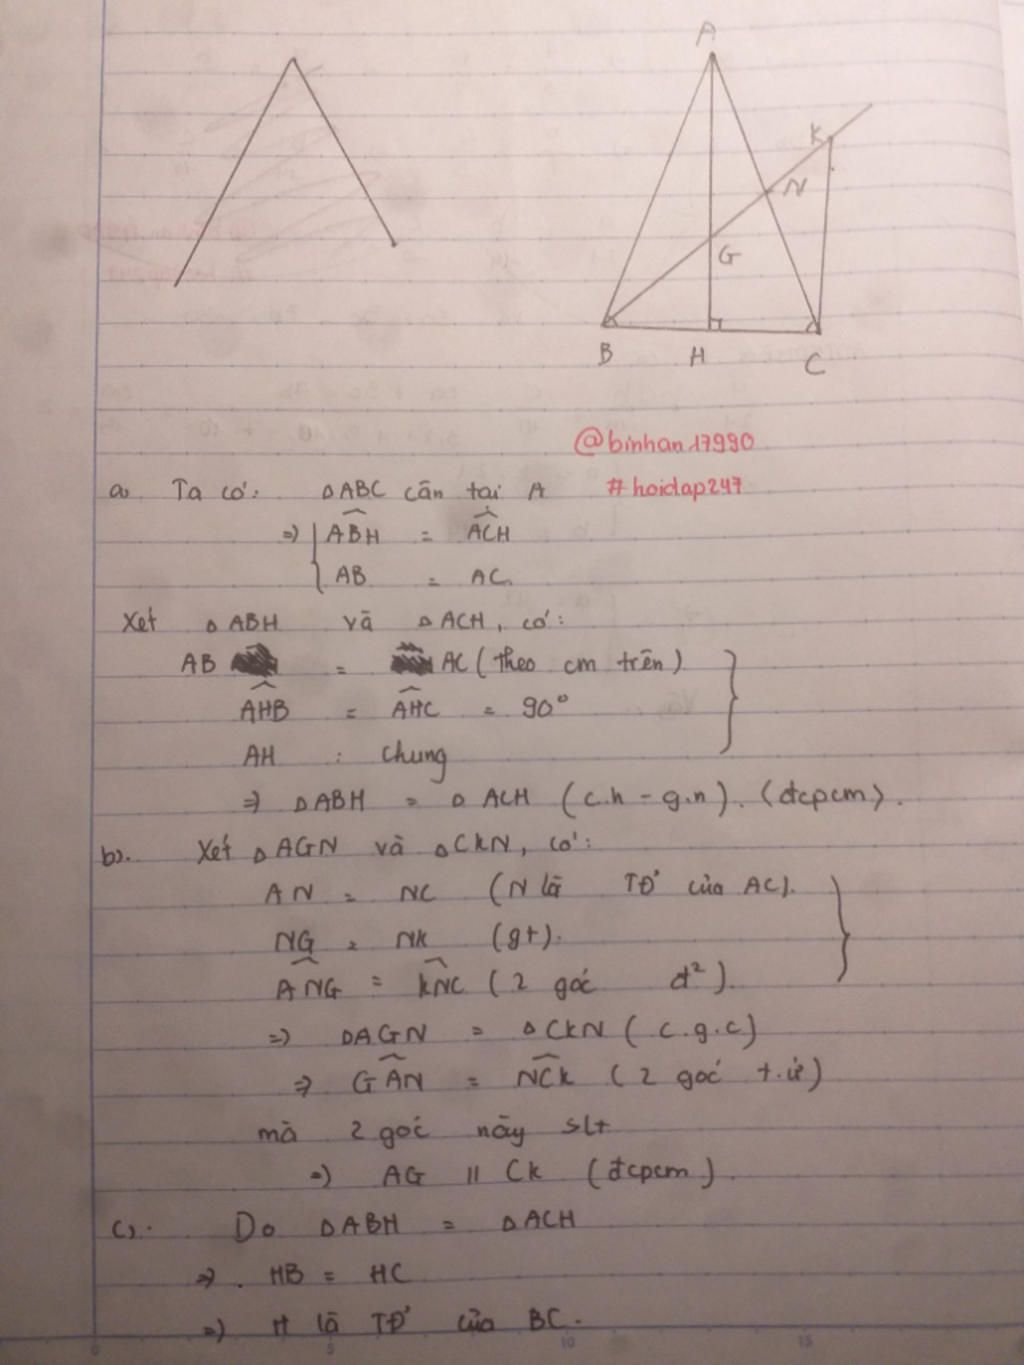 A
K
N
G
B H C
@binhan17990
a) Ta có: ΔABC cân tại A #hoidap247
=> ABH = ACH
AB = AC.
Xét ΔABH và ΔACH, có:
AB = AC (theo cm trên)
AHB = AHC = 90°
AH : chung
=> ΔABH = ΔACH (c.h - g.n). (đcpcm).
b). Xét ΔAGN và ΔCKN, có:
AN = NC (N là TĐ' của AC).
NG = NK (gt).
ANG = KNC (2 góc đ²).
=> ΔAGN = ΔCKN (c.g.c)
=> GAN = NCK (2 góc t.ứ)
mà 2 góc này slt
=> AG // CK (đcpcm).
c). Do ΔABH = ΔACH
=> . HB = HC
=> H là TĐ' của BC.
0 5 10 15